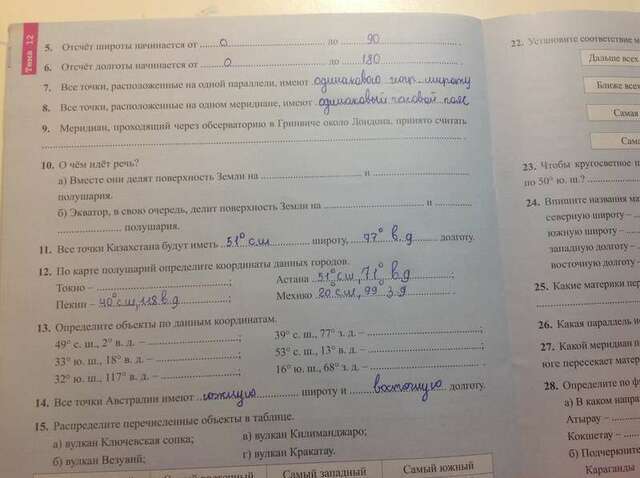 Тема 12
5. Отсчёт широты начинается от 0 до 90 .
6. Отсчёт долготы начинается от 0 до 180 .
7. Все точки, расположенные на одной параллели, имеют одинаковую геогр. широту
8. Все точки, расположенные на одном меридиане, имеют одинаковый часовой пояс
9. Меридиан, проходящий через обсерваторию в Гринвиче около Лондона, принято считать
10. О чём идёт речь?
а) Вместе они делят поверхность Земли на и
полушария.
б) Экватор, в свою очередь, делит поверхность Земли на и
полушария.
11. Все точки Казахстана будут иметь 51° с.ш широту, 77° в.д долготу.
12. По карте полушарий определите координаты данных городов.
Токио – ; Астана 51° сш, 71° в.д
Пекин – 40° сш, 118 в.д ; Мехико 20° сш, 99° з.д
13. Определите объекты по данным координатам.
49° с. ш., 2° в. д. – ; 39° с. ш., 77° з. д. – ;
33° ю. ш., 18° в. д. – ; 53° с. ш., 13° в. д. – ;
32° ю. ш., 117° в. д. – ; 16° ю. ш., 68° з. д. – .
14. Все точки Австралии имеют южную широту и восточную долготу.
15. Распределите перечисленные объекты в таблице.
а) вулкан Ключевская сопка; в) вулкан Килиманджаро;
б) вулкан Везувий; г) вулкан Кракатау.
Самый западный Самый южный
22. Установите соответствие м
Дальше всех
Ближе всех
Самая
Сама
23. Чтобы кругосветное
по 50° ю. ш.?
24. Впишите названия ма
северную широту –
южную широту –
западную долготу –
восточную долготу –
25. Какие материки пер
26. Какая параллель
27. Какой меридиан п
юге пересекает матер
28. Определите по
а) В каком напра
Атырау –
Кокшетау –
б) Подчеркните
Караганды